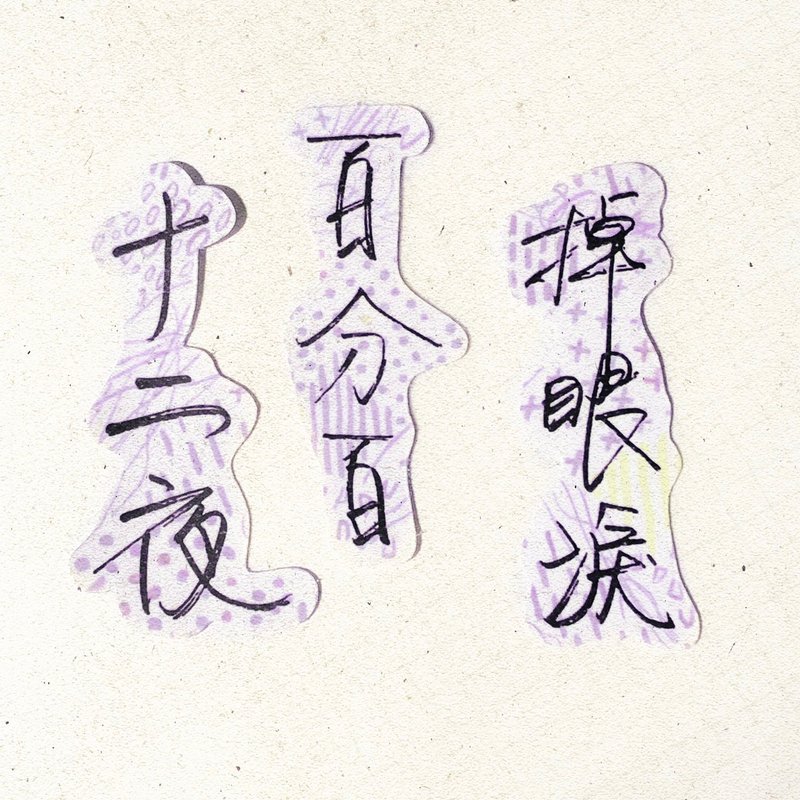 掉眼淚
百分百
十二夜